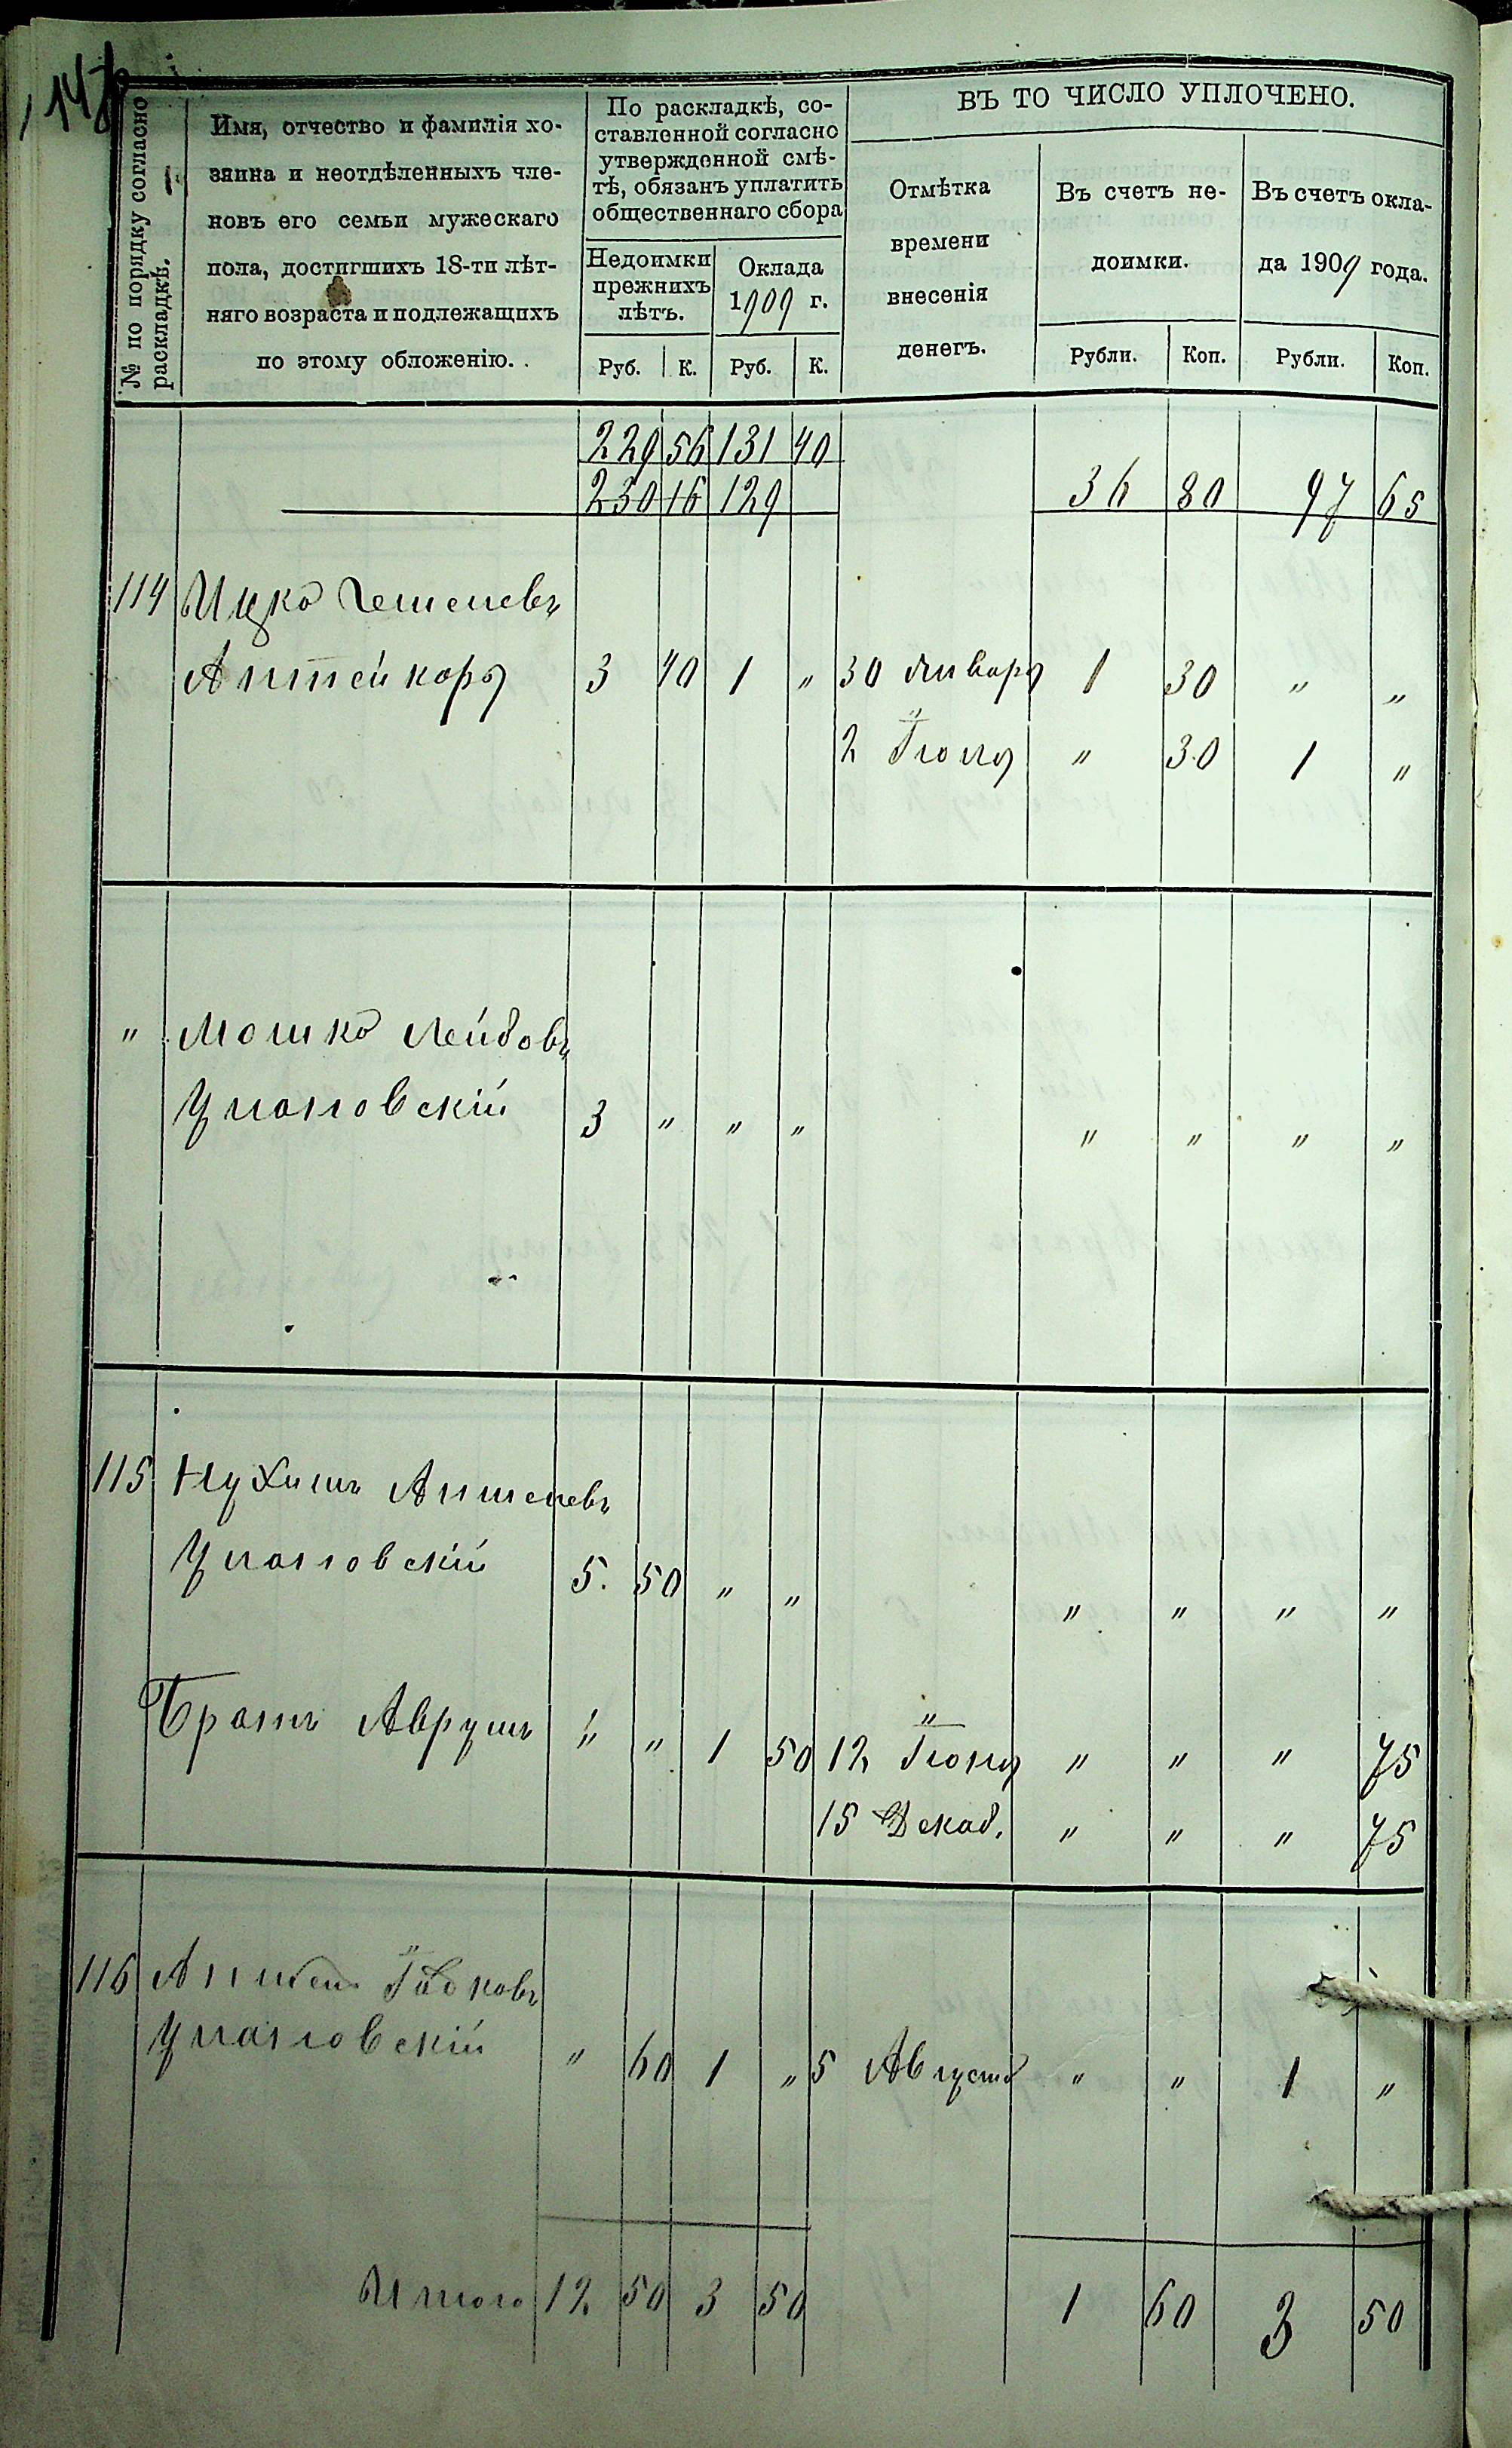 № по порядку согласно раскладкѣ.
Имя, отчество и фамилія хо-
зяина и неотдѣленныхъ чле-
новъ его семьи мужескаго
пола, достигшихъ 18-ти лѣт-
няго возраста и подлежащихъ
по этому обложенію.
По раскладкѣ, со-
ставленной согласно
утвержденной смѣ-
тѣ, обязанъ уплатить
общественнаго сбора
Недоимки
прежнихъ
лѣтъ.
Оклада
1909 г.
Руб. К. Руб. К.
ВЪ ТО ЧИСЛО УПЛОЧЕНО.
Отмѣтка
времени
внесенія
денегъ.
Въ счетъ не-
доимки.
Въ счетъ окла-
да 1909 года.
Рубли. Коп. Рубли. Коп.
229 56 131 40
230 16 129 36 80 97 65
114 Ицко
3 40 1 " 30 Января 1 30 " "
2 Іюля " 30 1 "
" Мошко Лейбовъ
3 " " " " " " "
115 Нухимъ Аншелевъ
5. 50 " " " " " "
Братъ Аврумъ " " 1 50 12 " " " 75
15 Декаб. " " " 75
116 Аншель
" 60 1 " 5 Августа " " 1 "
Итого 12 50 3 50 1 60 3 50